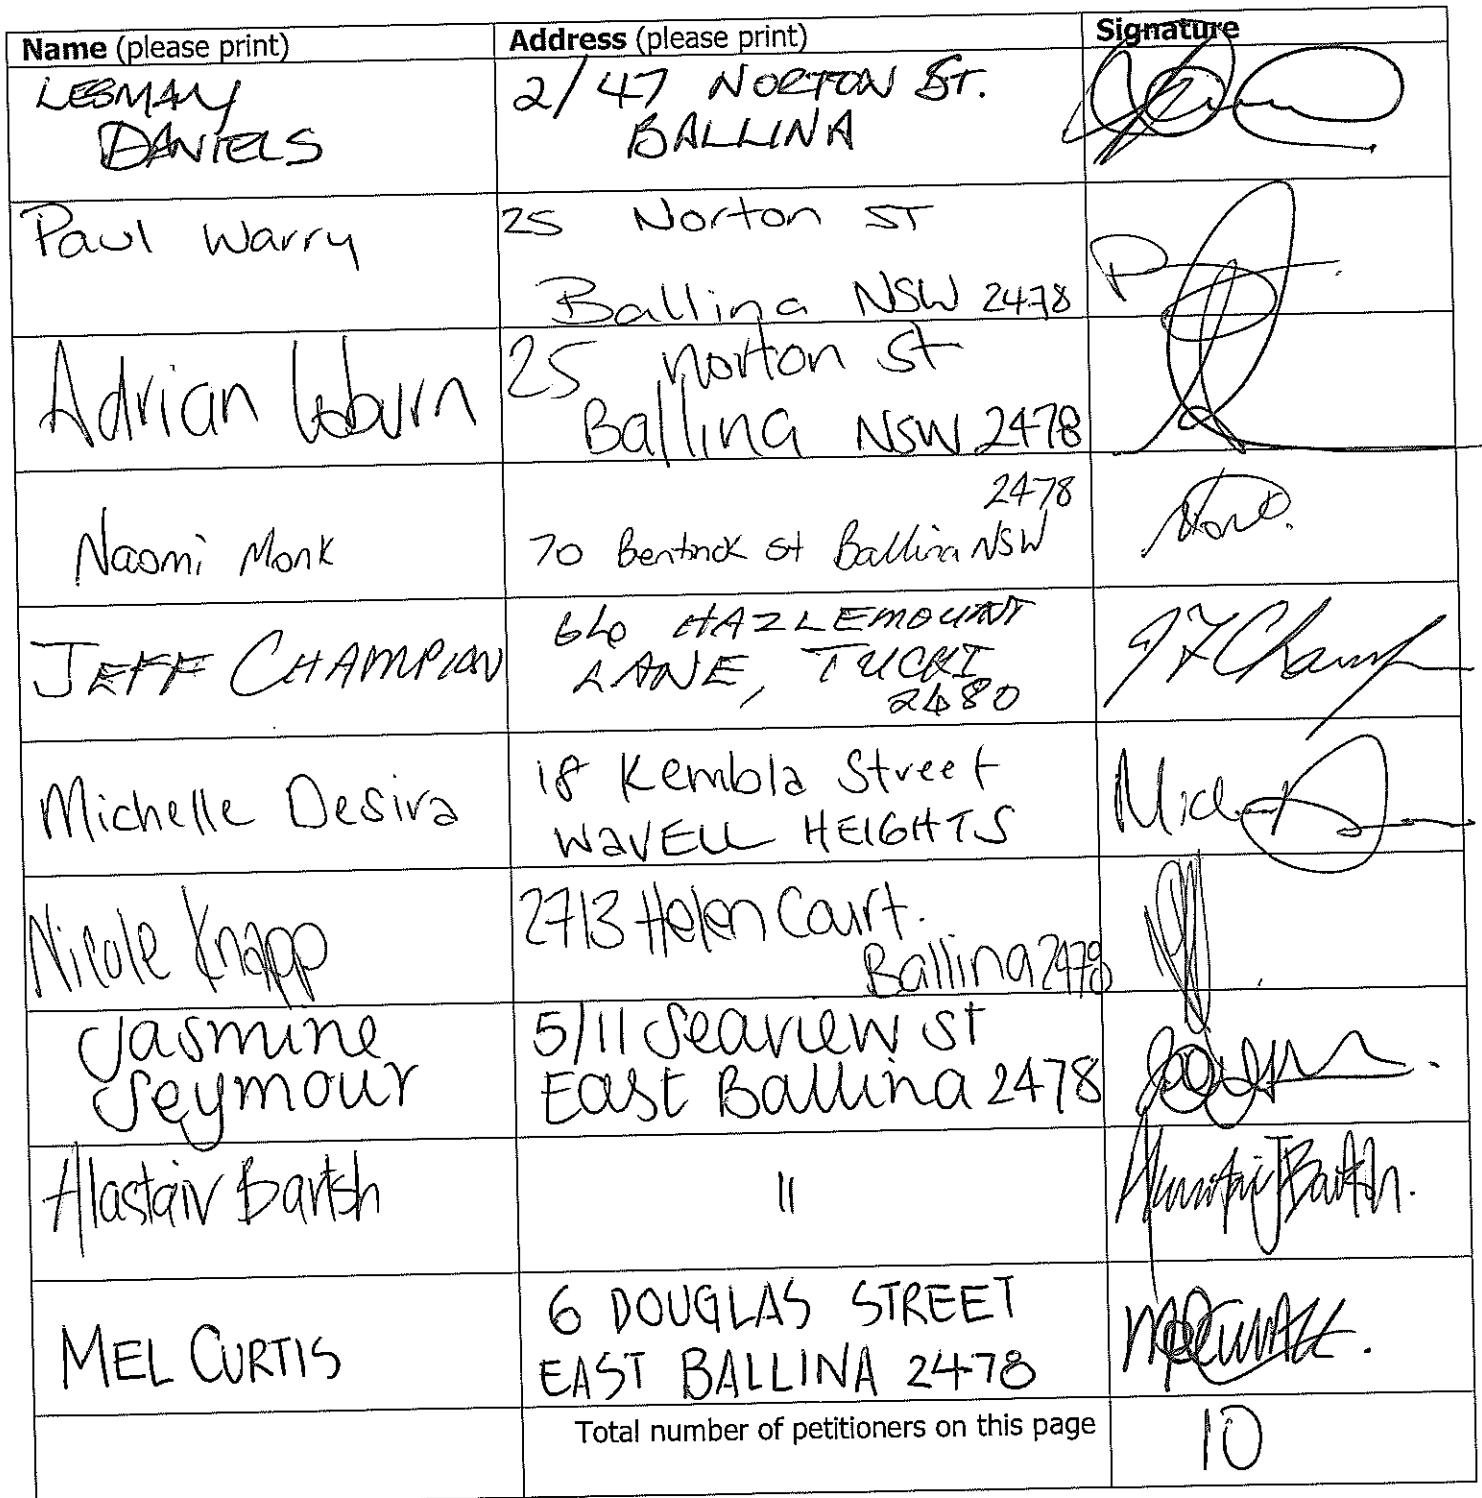 Name (please print) Address (please print) Signature
LESMAY 2/47 NORTON ST.
DANIELS BALLINA
Paul Warry 25 Norton ST
Ballina NSW 2478
Adrian Woburn 25 Norton St
Ballina NSW 2478
2478
Naomi Monk 70 Bentinck St Ballina NSW
JEFF CHAMPION HAZLEMOUNT
LANE, TUCKI
2480
Michelle Desira 18 Kembla Street
WAVELL HEIGHTS
Nicole Knapp Helen Court.
Ballina 2478
Jasmine 5/11 Seaview St
Seymour East Ballina 2478
Alastair Bartsh 11
MEL CURTIS 6 DOUGLAS STREET
EAST BALLINA 2478
Total number of petitioners on this page 10